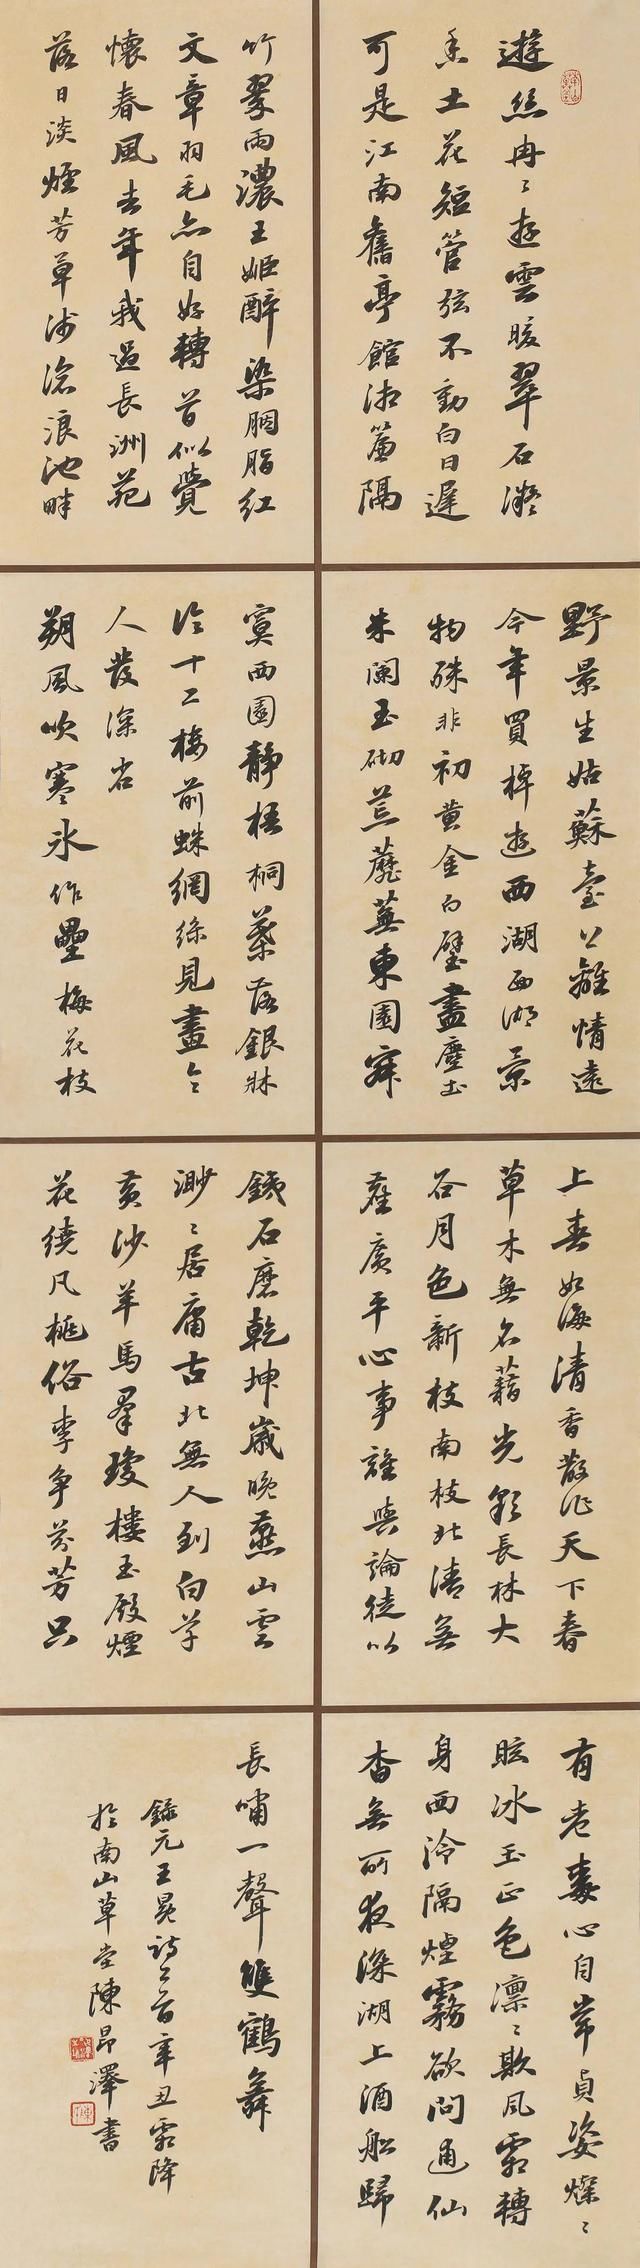 遊絲冉〻遊雲暖翠石凝
香土花短管弦不動白日遲
可是江南舊亭館湘簾隔
竹翠雨濃王姬醉染胭脂紅
文章羽毛亦自好轉首似覺
懷春風去年我過長洲苑
落日淡煙芳草淺滄浪池畔
野景生姑蘇臺上離情遠
今年買棹遊西湖西湖景
物殊非初黃金白璧盡塵土
朱闌玉砌荒蘼蕪東園寂
寞西園靜梧桐葉落銀牀
冷十二樓前蛛網絲見畫令
人發深省
朔風吹寒冰作壘梅花枝
上春如海清香散作天下春
草木無名藉光彩長林大
谷月色新枝南枝北清無
塵廣平心事誰與論徒以
鐵石磨乾坤歲晚燕山雲
渺〻居庸古北無人到白草
黃沙羊馬群瓊樓玉殿煙
花繞凡桃俗李爭芬芳只
有老梅心自常貞姿燦〻
眩冰玉正色凜〻欺風霜轉
身西泠隔煙霧欲問逋仙
杳無所夜深湖上酒船歸
長嘯一聲雙鶴舞
錄元王冕詩二首辛丑霜降
於南山草堂陳昂澤書